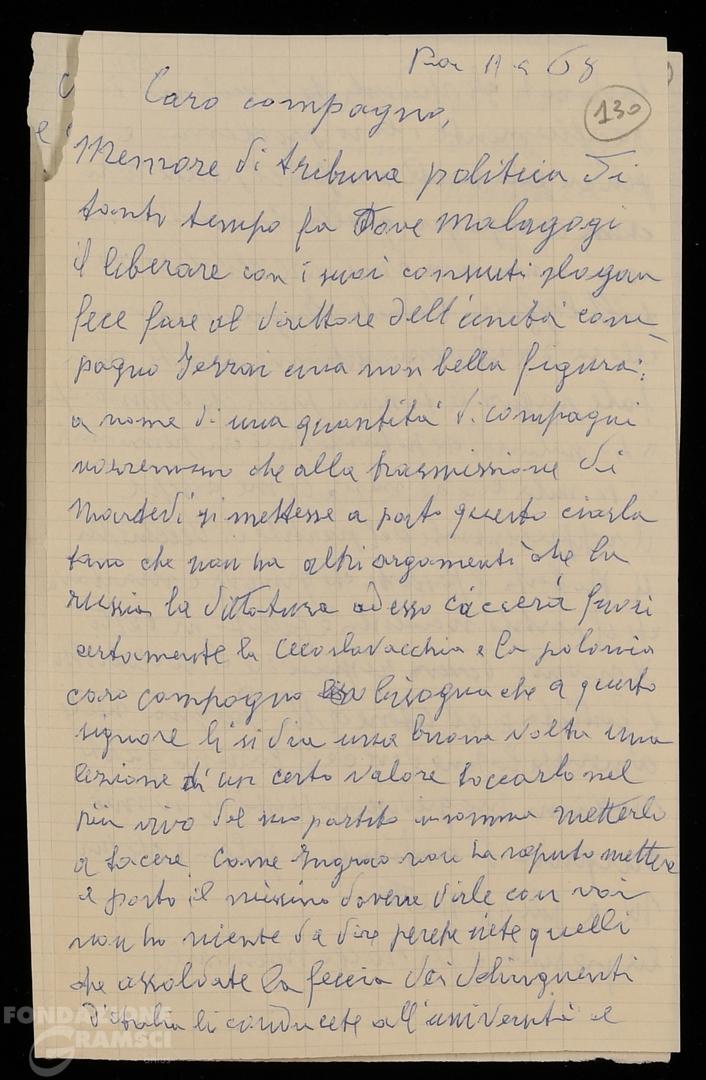 11 4 68
130
Caro compagno,
Memore di tribuna politica di
tanto tempo fa dove Malagogi
il liberare con i suoi consueti slogan
fece fare al direttore dell'unità com-
pagno Ferrai una non bella figura:
a nome di una quantità di compagni
vorremmo che alla trasmissione di
Martedì si mettesse a posto questo ciarla
tano che non ha altri argomenti che la
russia la dittatura adesso caccerà fuori
certamente la Cecoslovacchia e la polonia
caro compagno bisogna che a questo
signore li si dia una buona volta una
lezione di un certo valore toccarlo nel
più vivo del suo partito insomma metterlo
a tacere. Come Ingrao non ha saputo mettere
a posto il missino doveva dirle con voi
non ho niente da dire perche siete quelli
che assoldate la feccia dei delinquenti
d'italia li conducete all'università e
FONDAZIONE
GRAMSCI